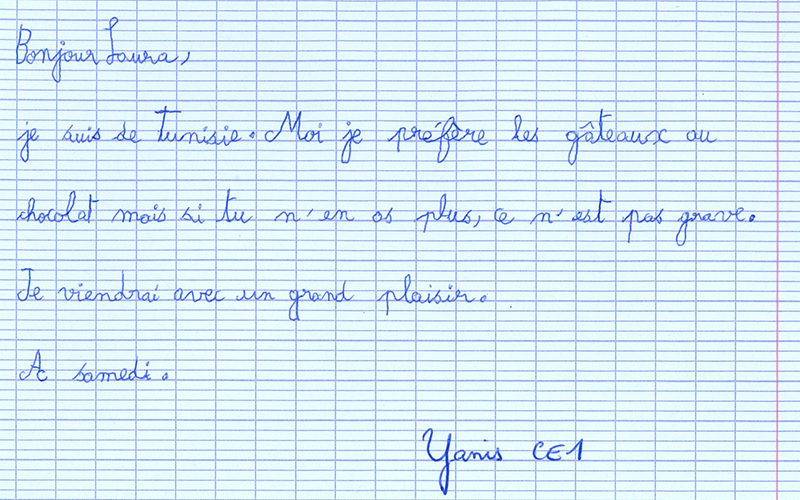 Bonjour Laura,
je suis de Tunisie. Moi je préfère les gâteaux au
chocolat mais si tu n'en as plus, ce n'est pas grave.
Je viendrai avec un grand plaisir.
A samedi.
Yanis CE1